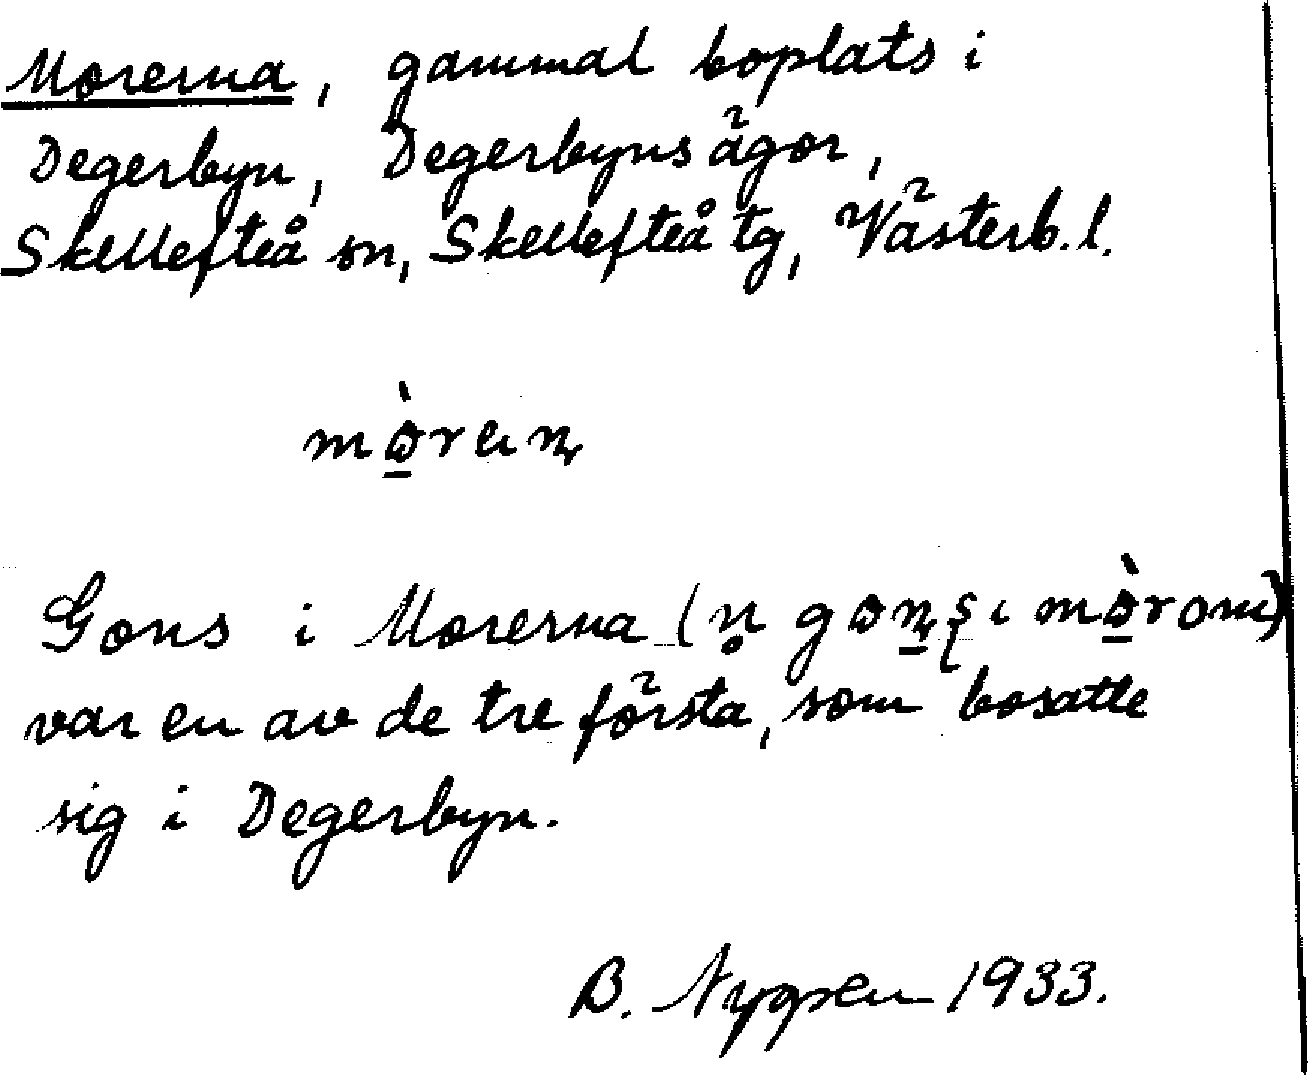 Morerna, gammal boplats i
Degerbyn, Degerbyns ägor,
Skellefteå sn, Skellefteå tg, Västerb. l.
Gons i Morerna
var en av de tre första, som bosatte
sig i Degerbyn.
B. Nygren 1933.